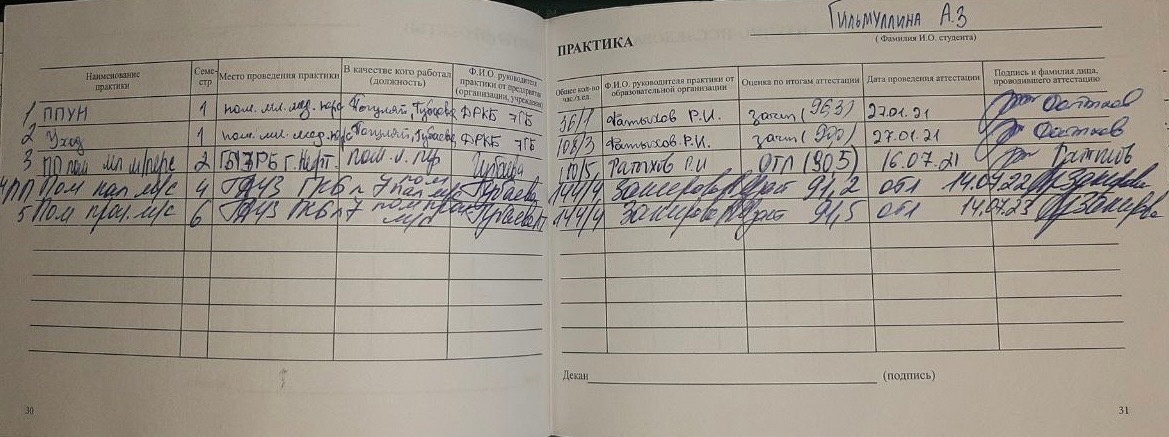 Наименование практики
Семестр
Место проведения практики
В качестве кого работал (должность)
Ф.И.О руководителя практики от предприятия (организации, учреждения)
1 ППУН 1 пом. мл. мед. перс ДРКБ 7ГБ
2 Уход 1 пом. мл. мед. перс ДРКБ 7ГБ
3 ПП пом мл м/перс 2 пом. м. Губаева
4 ПП Пом пал м/с 4 ГАУЗ ГКБ № 7 пом пал м/с Губаева
5 Пом проц. м/с 6 ГАУЗ ГКБ № 7 пом проц м/с Губаева
30
Гильмуллина А.З
ПРАКТИКА
( Фамилия И.О. студента)
Общее кол-во час./з.ед.
Ф.И.О. руководителя практики от образовательной организации
Оценка по итогам аттестации
Дата проведения аттестации
Подпись и фамилия лица, проводившего аттестацию
36/1 Фатыхов Р.И. зачт (96,3) 27.01.21
108/3 Фатыхов Р.И. зачт 27.01.21
Р.И ОТЛ (90,5) 16.07.21
144/4 91,2 отл 14.07.22
144/4 91,5 отл 14.07.23
Декан (подпись)
31